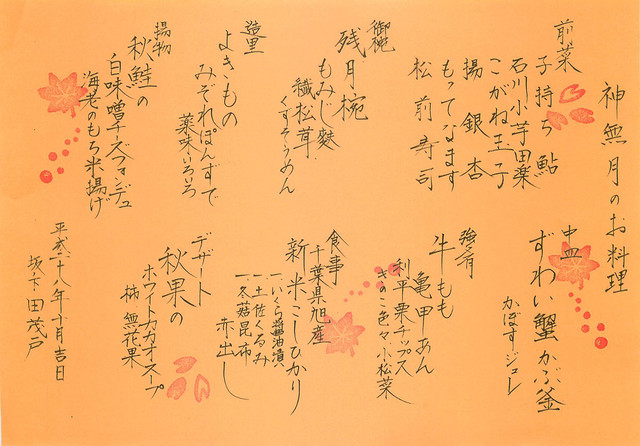 神無月のお料理
前菜
子持ち鮎
石川小芋田楽
こがね玉子
揚銀杏
もってなます
松前寿司
御椀
残月椀
もみじ麩
繊松茸
くずそうめん
造里
よきもの
みぞれぽんずで
薬味いろいろ
揚物
秋鮭の
白味噌チーズフォンデュ
海老のもち米揚げ
中皿
ずわい蟹かぶ釜
かぼすジュレ
強肴
牛もも
亀甲あん
利平栗チップス
きのこ色々小松菜
食事
千葉県旭産
新米こしひかり
一、いくら醤油漬
一、土佐くるみ
一、冬菇昆布
赤出し
デザート
秋果の
ホワイトカカオスープ
柿 無花果
平成二十八年十月吉日
坂下田茂戸